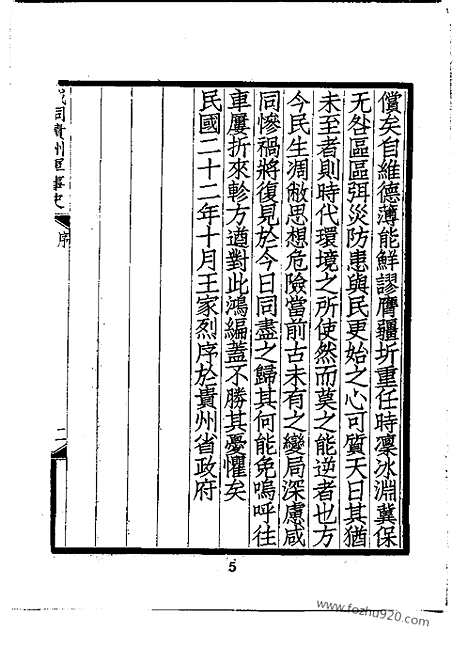 償矣自維德薄能鮮謬膺疆圻重任時凜冰淵冀保
无咎區區弭災防患與民更始之心可質天日其猶
未至者則時代環境之所使然而莫之能逆者也方
今民生凋敝思想危險當前古未有之變局深慮咸
同慘禍將復見於今日同盡之歸其何能免嗚呼往
車屢折來軫方遒對此鴻編蓋不勝其憂懼矣
民國二十二年十月王家烈序於貴州省政府
咸同貴州軍事史
序
二
5
www.fozhu920.com